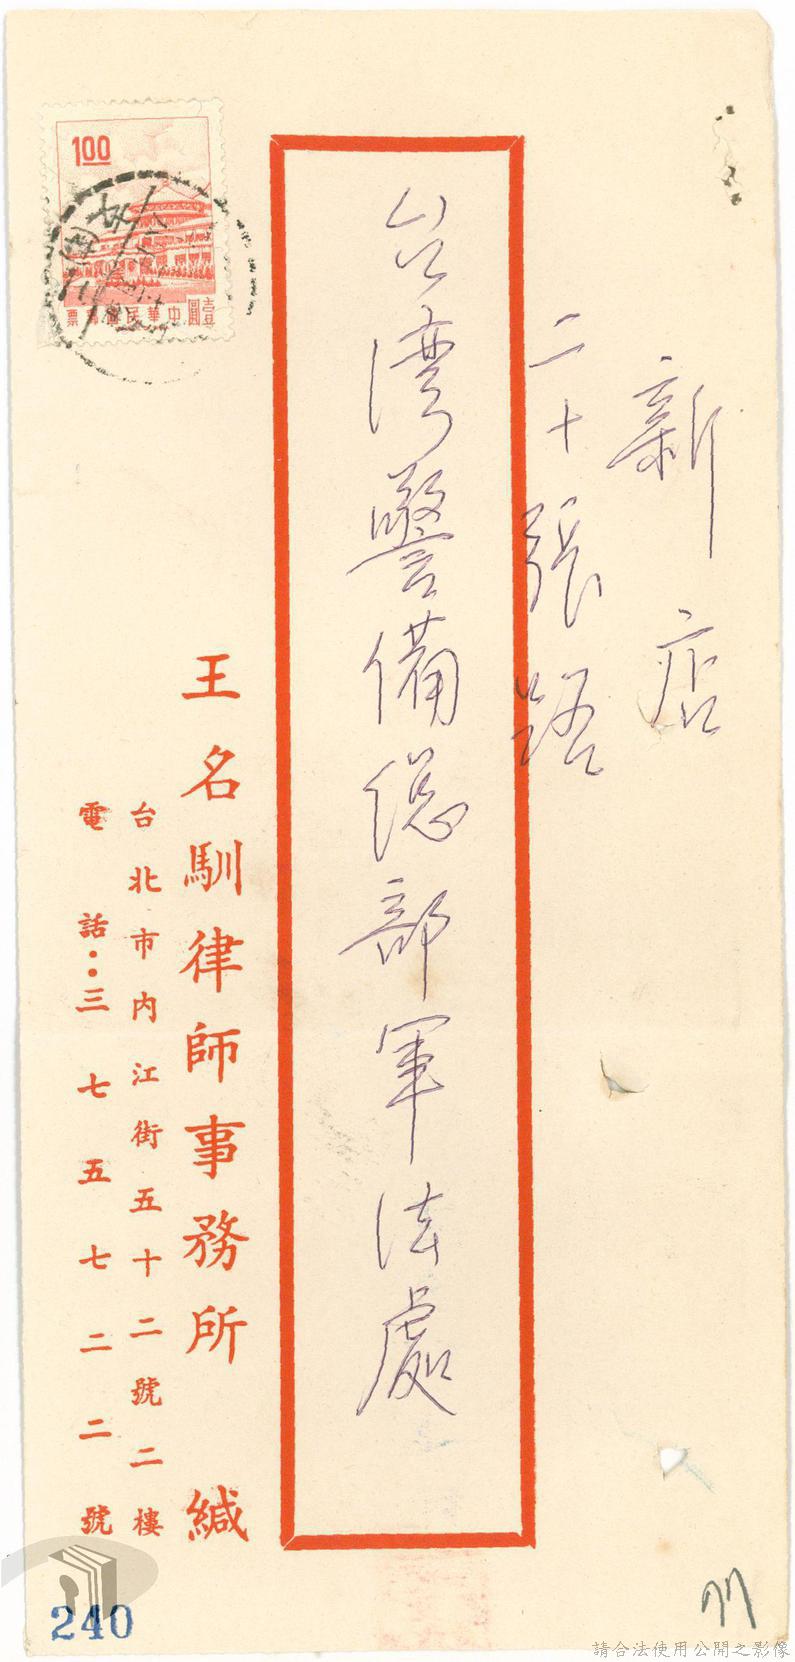 新店
二十張路
台湾警備総部軍法處
王名馴律師事務所 緘
台北市內江街五十二號二樓
電話：三七五七二二號
1.00
壹圓 中華民國郵票
240
請合法使用公開之影像